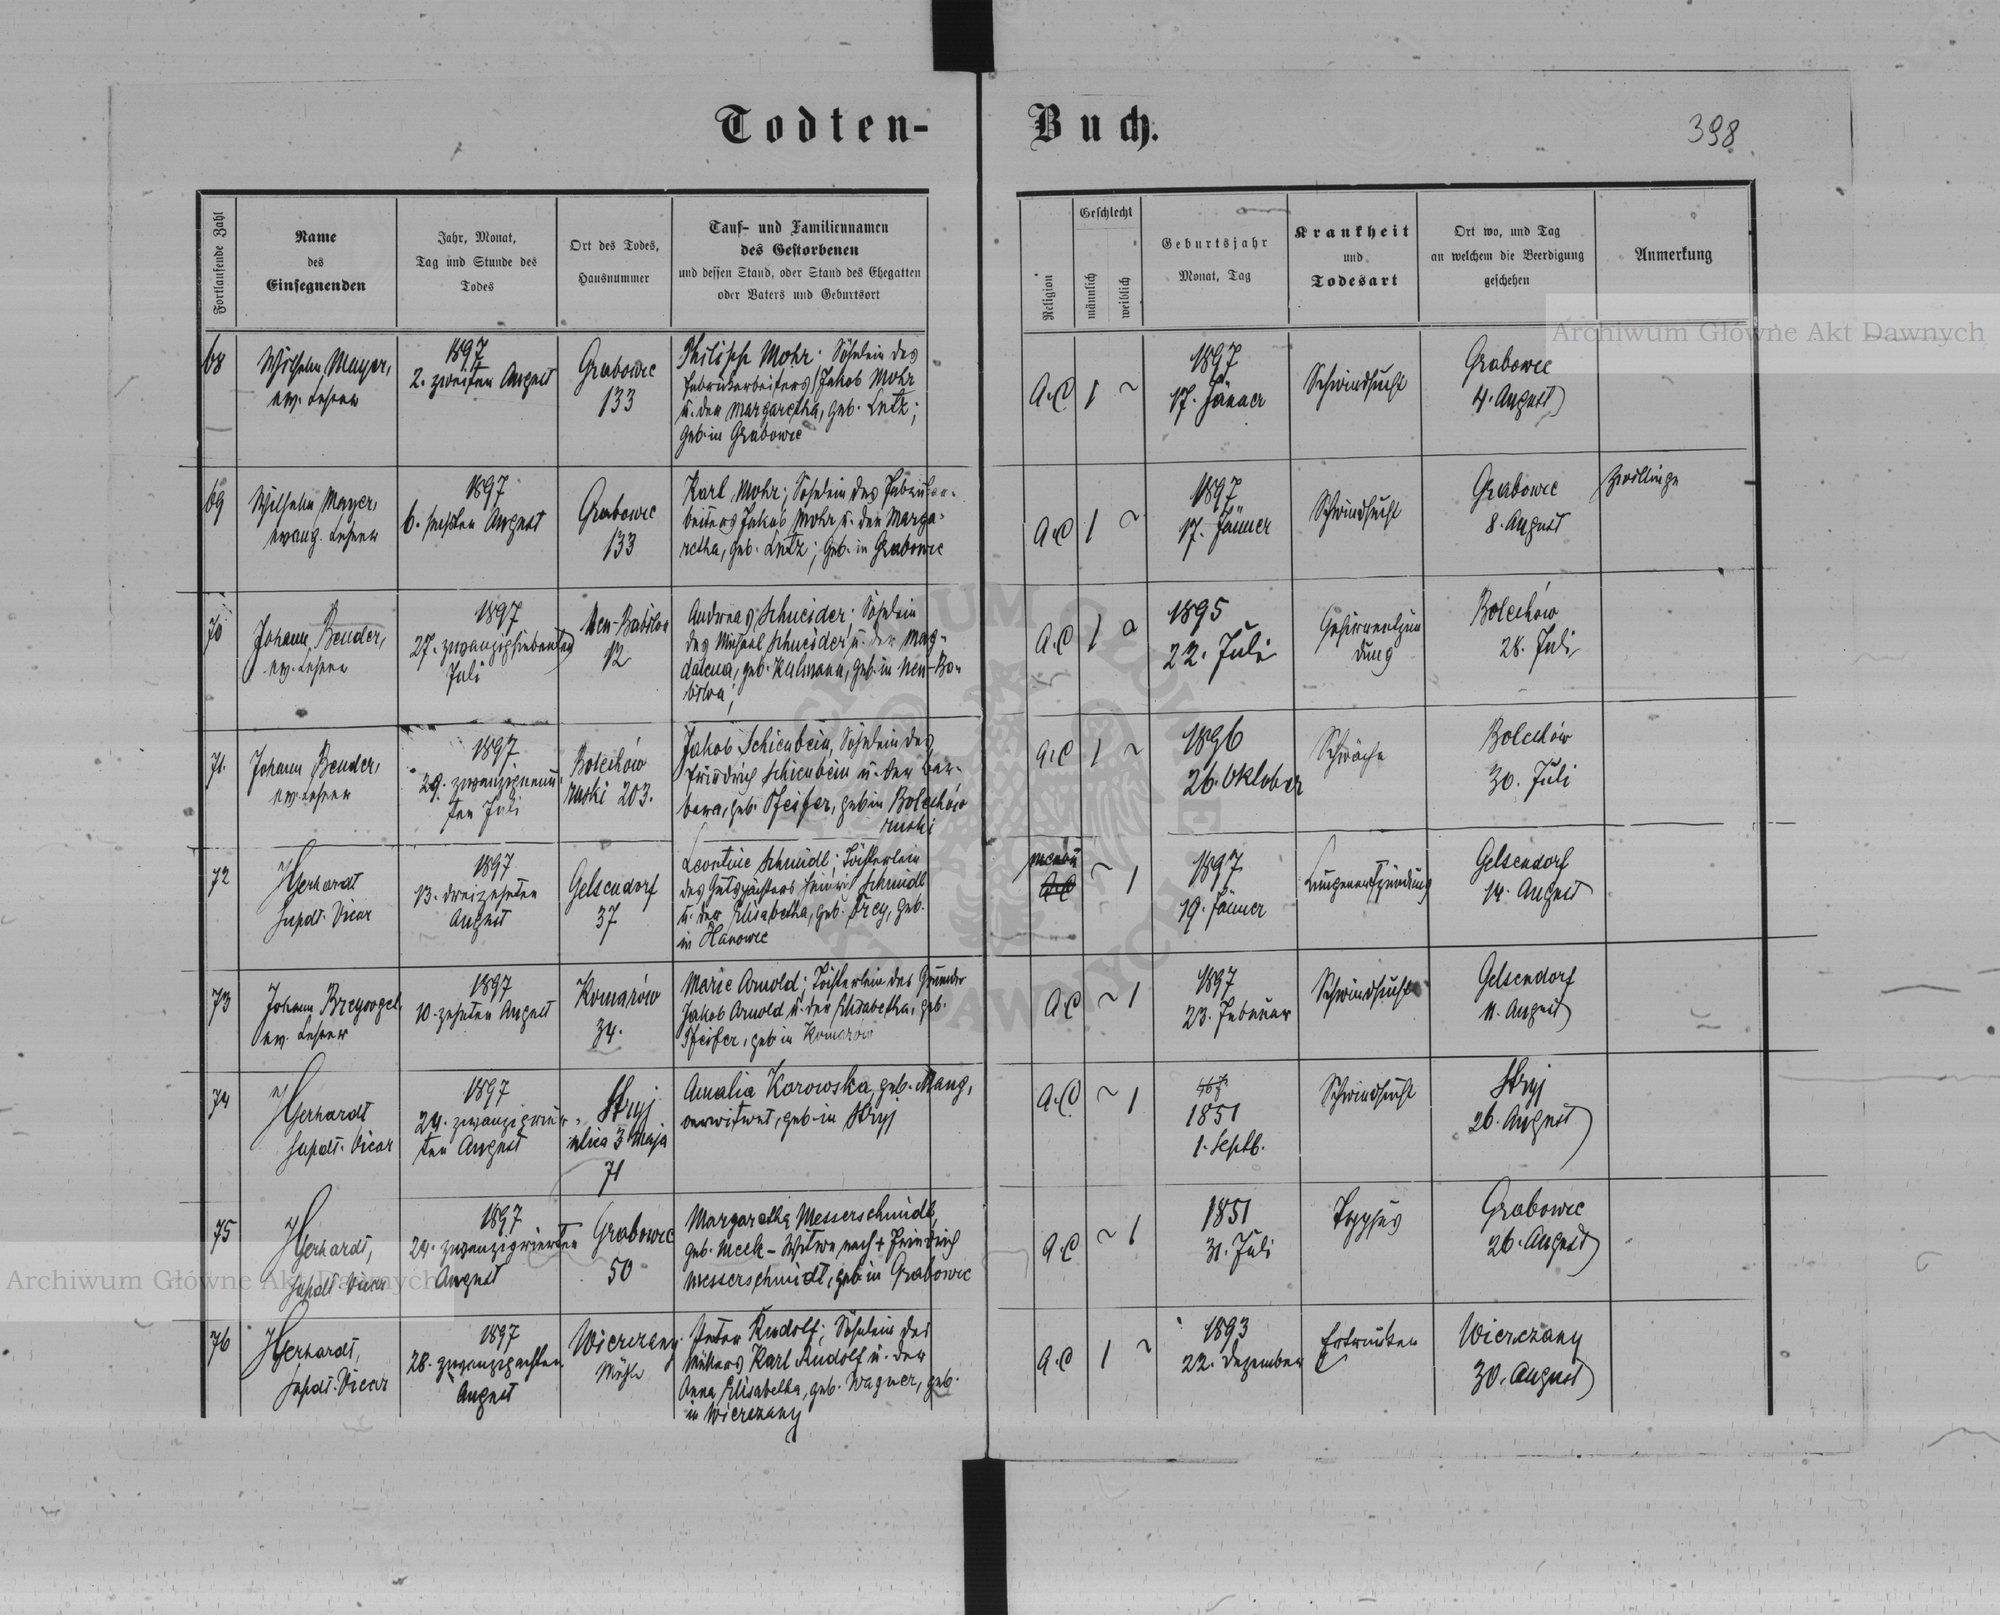 Todten-Buch.
398
Fortlaufende Zahl
Name
des
Einsegnenden
Jahr, Monat,
Tag und Stunde des
Todes
Ort des Todes,
Hausnummer
Tauf- und Familiennamen
des Gestorbenen
und dessen Stand, oder Stand des Ehegatten
oder Vaters und Geburtsort
Religion
Geschlecht
männlich
weiblich
Geburtsjahr
Monat, Tag
Krankheit
und
Todesart
Ort wo, und Tag
an welchem die Beerdigung
geschehen
Anmerkung
68
Wilhelm Mayer,
ev. Lehrer
1897
2. zweiten August
Grabowec
133
Philipp Mohr; Söhnlein des
Fabriksarbeiters Jakob Mohr
u. der Margaretha, geb. Lutz;
geb. in Grabowec
A.C
1
1897
17. Jänner
Schwindsucht
Grabowec
4. August
69
Wilhelm Mayer,
evang. Lehrer
1897
6. sechsten August
Grabowec
133
Karl Mohr; Söhnlein des Fabriksar-
beiters Jakob Mohr u. der Marga-
retha, geb. Lutz; geb. in Grabowec
A.C
1
1897
17. Jänner
Schwindsucht
Grabowec
8. August
Zwillinge
70
Johann Bender,
ev. Lehrer
1897
27. zwanzigsiebenten
Juli
Neu-Babilon
12
Andreas Schneider; Söhnlein
des Michael Schneider u. der Mag-
dalena, geb. Kulmann, geb. in Neu-Ba-
bilon;
A.C
1
1895
22. Juli
Gehirnentzün
dung
Bolechów
28. Juli
71.
Johann Bender,
ev. Lehrer
1897
29. zwanzigneun-
ten Juli
Bolechów
ruski 203.
Jakob Schienbein, Söhnlein des
Friedrich Schienbein u. der Bar-
bara, geb. Pfeifer, geb in Bolechów
ruski
A.C
1
1896
26. Oktober
Schwäche
Bolechów
30. Juli
72
Gerhardt
Supdt. Vicar
1897
13. dreizehnten
August
Gelsendorf
37
Leontine Schmidl; Töchterlein
des Gutspächters Heinrich Schmidl
u. der Elisabetha, geb. Frey, geb.
in Hanowce
A.C
1
1897
19. Jänner
Lungenentzündung
Gelsendorf
14. August
73
Johann Breyvogel,
ev. Lehrer
1897
10. zehnten August
Komarów
34.
Marie Arnold; Töchterlein des
Jakob Arnold u. der Elisabetha, geb.
Pfeifer, geb in Komarow
A.C
1
1897
23. Februar
Schwindsucht
Gelsendorf
11. August
74
Gerhardt
Supdt. Vicar
1897
24. zwanzigvier-
ten August
Stryj
ulica 3 Maja
71
Amalia Korowska, geb. Mang,
verwitwet, geb. in Stryj
A.C.
1
1851
1. Septb.
Schwindsucht
Stryj
26. August
75
Gerhardt,
Supdt. Vicar
1897
24. zwanzigvierten
August
Grabowec
50
Margaretha Messerschmidt,
geb. Meck - Witwe nach + Friedrich
Messerschmidt, geb in Grabowec
A.C
1
1851
31. Juli
Typhus
Grabowec
26. August
76
Gerhardt,
Supdt. Vicar
1897
28. zwanzigachten
August
Wierczany
Mühle
Peter Rudolf; Söhnlein des
Müllers Karl Rudolf u. der
Anna Elisabetha, geb. Wagner, geb.
in Wierczany
A.C
1
1893
22. Dezember
Ertrunken
Wierczany
30. August
Archiwum Główne Akt Dawnych
Archiwum Główne Akt Dawnych
ARCHIWUM GŁÓWNE AKT DAWNYCH